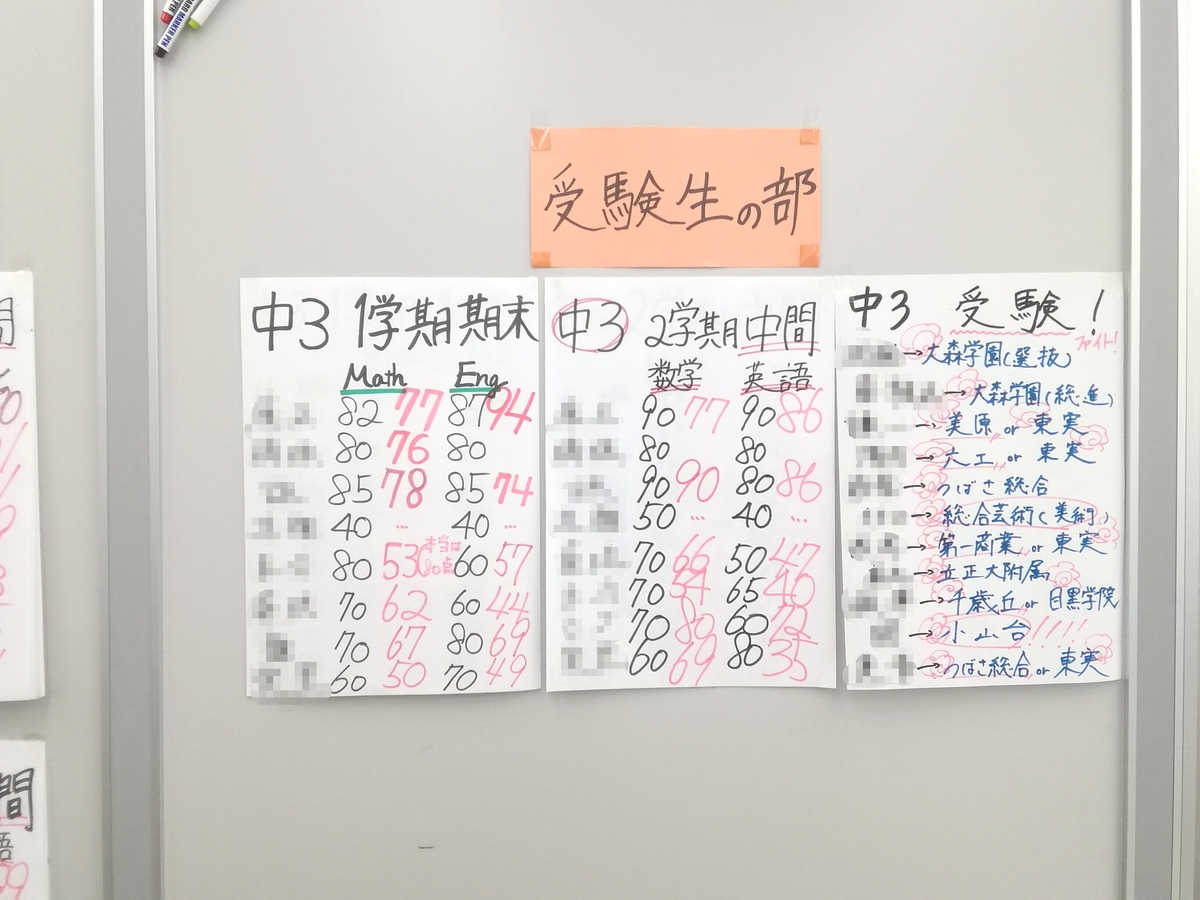 MARKER PEN
受験生の部
中3 1学期期末
Math Eng
82 77 87 94
80 76 80
85 78 85 74
40 … 40 …
80 53(本当は80点) 60 57
70 62 60 44
70 67 80 69
60 50 70 49
中3 2学期中間
数学 英語
90 77 90 86
80 80
90 90 80 86
50 … 40 …
70 66 50 47
70 54 65 40
70 80 60 72
60 69 80 35
中3 受験!
ファイト!
→大森学園(選抜)
→大森学園(総進)
→美原 or 東実
→六工 or 東実
→つばさ総合
→総合芸術(美術)
→第一商業 or 東実
→立正大附属
→千歳丘 or 目黒学院
→小山台!!!!
→つばさ総合 or 東実
間
語
99